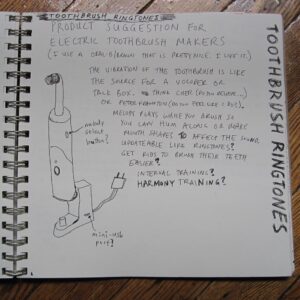 TOOTHBRUSH RINGTONES
PRODUCT SUGGESTION FOR
ELECTRIC TOOTHBRUSH MAKERS
(I USE A ORAL-B/BRAUN THAT IS PRETTY NICE. I LIKE IT.)
THE VIBRATION OF THE TOOTHBRUSH IS LIKE
THE SOURCE FOR A VOCODER OR
TALK BOX. THINK CHER (DO YOU BELIEVE...)
OR PETER FRAMPTON (DO YOU FEEL LIKE I DO?).
MELODY PLAYS WHILE YOU BRUSH SO
YOU CAN HUM ALONG OR MAKE
MOUTH SHAPES TO AFFECT THE SOUND
UPDATEABLE LIKE RINGTONES?
GET KIDS TO BRUSH THEIR TEETH
EASIER?
INTERVAL TRAINING?
HARMONY TRAINING?
melody
select
button?
mini-usb
port?
TOOTHBRUSH RINGTONES